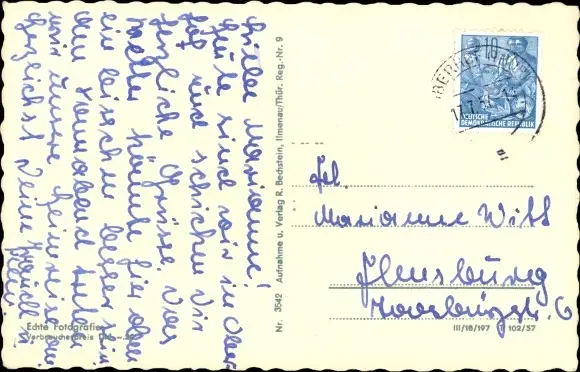 Liebe Marianne!
Heute sind wir in Ober
hof und schicken Dir
herzliche Grüsse. Das
Wetter könnte hier oben
ein bisschen besser sein
Am Sonnabend treten
wir unsere Heimreise an
Herzlichst Deine
Echte Fotografie
Verbraucherpreis DM
Nr. 3542 Aufnahme u. Verlag R. Bechstein, Ilmenau/Thür. Reg.-Nr. 9
BERLIN
17.7.
DEUTSCHE
DEMOKRATISCHE REPUBLIK
Frl.
Marianne Witt
Flensburg
6
III/18/197 T 102/57